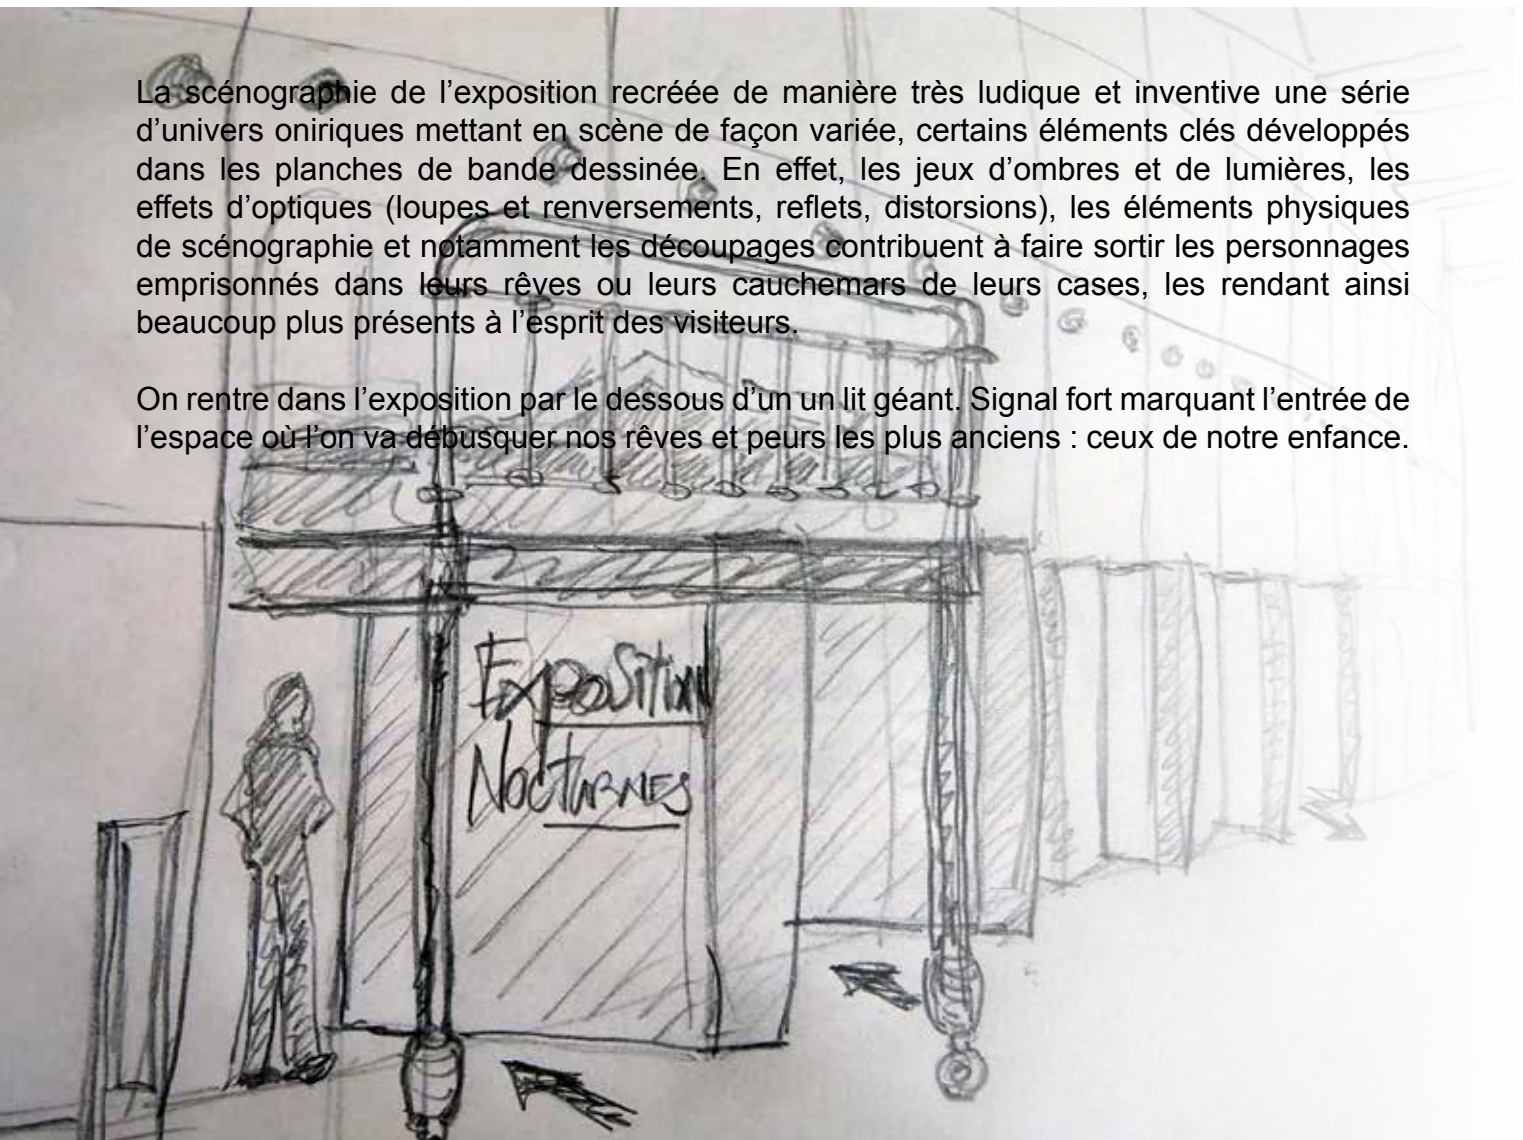 La scénographie de l’exposition recréée de manière très ludique et inventive une série
d’univers oniriques mettant en scène de façon variée, certains éléments clés développés
dans les planches de bande dessinée. En effet, les jeux d’ombres et de lumières, les
effets d’optiques (loupes et renversements, reflets, distorsions), les éléments physiques
de scénographie et notamment les découpages contribuent à faire sortir les personnages
emprisonnés dans leurs rêves ou leurs cauchemars de leurs cases, les rendant ainsi
beaucoup plus présents à l’esprit des visiteurs.
On rentre dans l’exposition par le dessous d’un un lit géant. Signal fort marquant l’entrée de
l’espace où l’on va débusquer nos rêves et peurs les plus anciens : ceux de notre enfance.
Exposition
Nocturnes